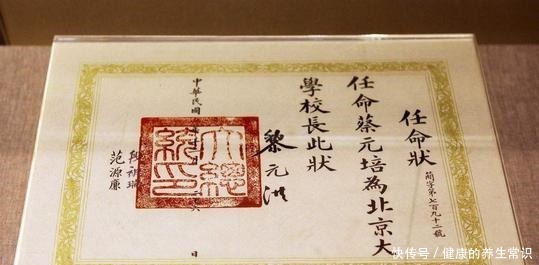 任命狀
簡字第七百九十二號
任命蔡元培為北京大
學校長此狀
黎元洪
大總統印
中華民國 日
段祺瑞
范源廉
快传号 / 健康的养生常识